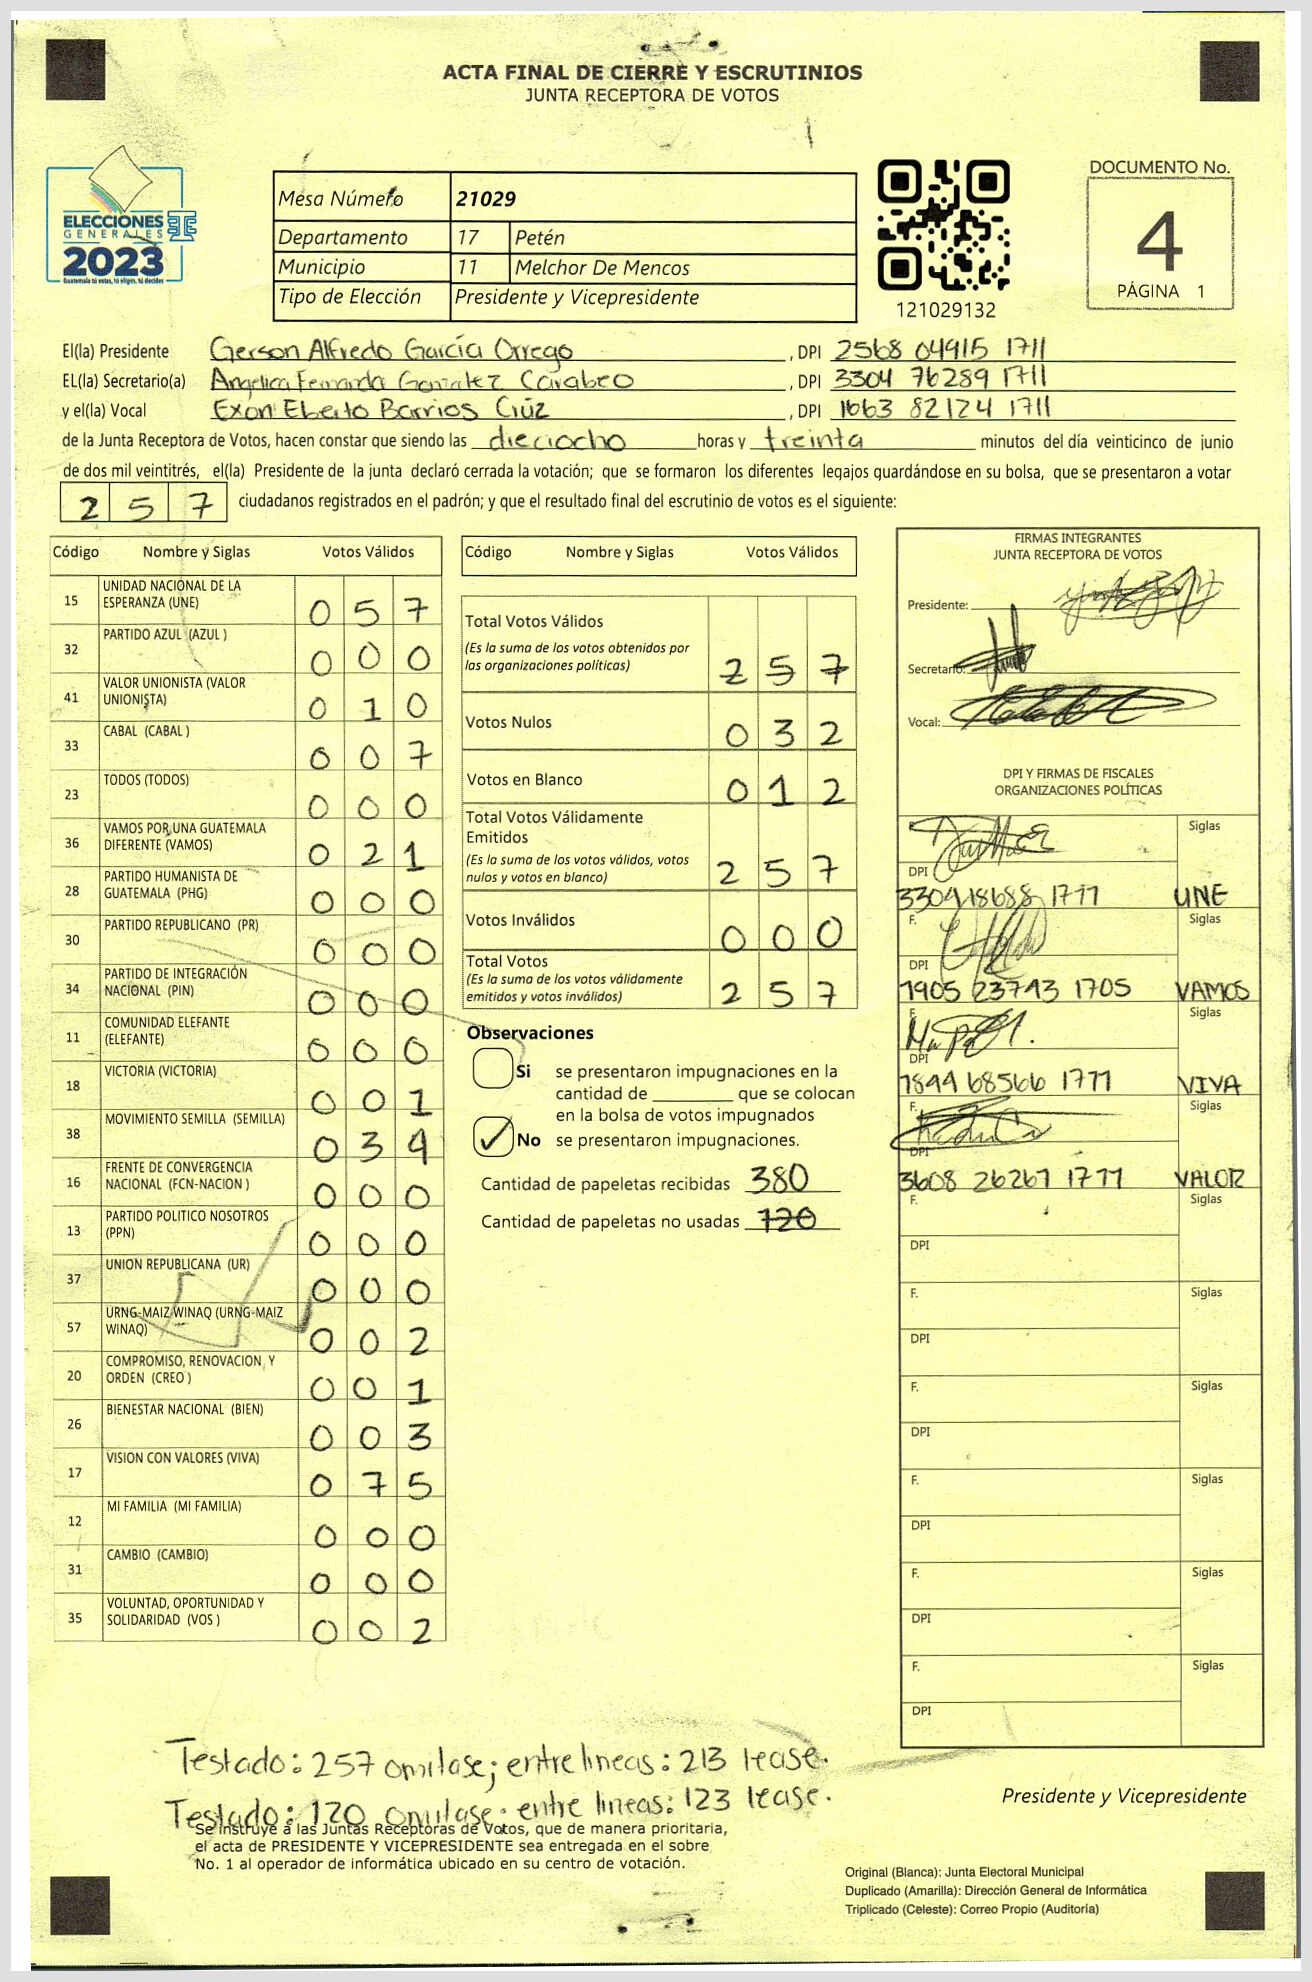 ACTA FINAL DE CIERRE Y ESCRUTINIOS
JUNTA RECEPTORA DE VOTOS
ELECCIONES
GENERALES
2023
Guatemala tú votas, tú eliges, tú decides
Mesa Número 21029
Departamento 17 Petén
Municipio 11 Melchor De Mencos
Tipo de Elección Presidente y Vicepresidente
121029132
DOCUMENTO No.
4
PÁGINA 1
El(la) Presidente Gerson Alfredo García Orrego, DPI 2568 04915 1711
EL(la) Secretario(a) Angelica Fernanda Gonzalez Carabeo, DPI 3304 76289 1711
y el(la) Vocal Exon Eberto Barrios Cruz, DPI 1663 82124 1711
de la Junta Receptora de Votos, hacen constar que siendo las dieciocho horas y treinta minutos del día veinticinco de junio
de dos mil veintitrés, el(la) Presidente de la junta declaró cerrada la votación; que se formaron los diferentes legajos guardándose en su bolsa, que se presentaron a votar
257 ciudadanos registrados en el padrón; y que el resultado final del escrutinio de votos es el siguiente:
Código Nombre y Siglas Votos Válidos
15 UNIDAD NACIONAL DE LA ESPERANZA (UNE) 0 5 7
32 PARTIDO AZUL (AZUL ) 0 0 0
41 VALOR UNIONISTA (VALOR UNIONISTA) 0 1 0
33 CABAL (CABAL ) 0 0 7
23 TODOS (TODOS) 0 0 0
36 VAMOS POR UNA GUATEMALA DIFERENTE (VAMOS) 0 2 1
28 PARTIDO HUMANISTA DE GUATEMALA (PHG) 0 0 0
30 PARTIDO REPUBLICANO (PR) 0 0 0
34 PARTIDO DE INTEGRACIÓN NACIONAL (PIN) 0 0 0
11 COMUNIDAD ELEFANTE (ELEFANTE) 0 0 0
18 VICTORIA (VICTORIA) 0 0 1
38 MOVIMIENTO SEMILLA (SEMILLA) 0 3 4
16 FRENTE DE CONVERGENCIA NACIONAL (FCN-NACION ) 0 0 0
13 PARTIDO POLITICO NOSOTROS (PPN) 0 0 0
37 UNION REPUBLICANA (UR) 0 0 0
57 URNG-MAIZ WINAQ (URNG-MAIZ WINAQ) 0 0 2
20 COMPROMISO, RENOVACION, Y ORDEN (CREO ) 0 0 1
26 BIENESTAR NACIONAL (BIEN) 0 0 3
17 VISION CON VALORES (VIVA) 0 7 5
12 MI FAMILIA (MI FAMILIA) 0 0 0
31 CAMBIO (CAMBIO) 0 0 0
35 VOLUNTAD, OPORTUNIDAD Y SOLIDARIDAD (VOS ) 0 0 2
Código Nombre y Siglas Votos Válidos
Total Votos Válidos
(Es la suma de los votos obtenidos por
las organizaciones políticas) 2 5 7
Votos Nulos 0 3 2
Votos en Blanco 0 1 2
Total Votos Válidamente
Emitidos
(Es la suma de los votos válidos, votos
nulos y votos en blanco) 2 5 7
Votos Inválidos 0 0 0
Total Votos
(Es la suma de los votos válidamente
emitidos y votos inválidos) 2 5 7
Observaciones
Si se presentaron impugnaciones en la
cantidad de ________ que se colocan
en la bolsa de votos impugnados
No se presentaron impugnaciones.
Cantidad de papeletas recibidas 380
Cantidad de papeletas no usadas 120
FIRMAS INTEGRANTES
JUNTA RECEPTORA DE VOTOS
Presidente:
Secretario:
Vocal:
DPI Y FIRMAS DE FISCALES
ORGANIZACIONES POLÍTICAS
Siglas
DPI
3304 18688 1711 UNE
F. Siglas
DPI
1905 23743 1705 VAMOS
F. Siglas
DPI
1844 68566 1711 VIVA
F. Siglas
DPI
3608 26267 1711 VALOR
F. Siglas
DPI
F. Siglas
DPI
F. Siglas
DPI
F. Siglas
DPI
F. Siglas
DPI
F. Siglas
DPI
Testado: 257 omitase; entre lineas: 213 lease.
Testado: 120 omitase: entre lineas: 123 lease.
Se instruye a las Juntas Receptoras de Votos, que de manera prioritaria,
el acta de PRESIDENTE Y VICEPRESIDENTE sea entregada en el sobre
No. 1 al operador de informática ubicado en su centro de votación.
Presidente y Vicepresidente
Original (Blanca): Junta Electoral Municipal
Duplicado (Amarilla): Dirección General de Informática
Triplicado (Celeste): Correo Propio (Auditoría)